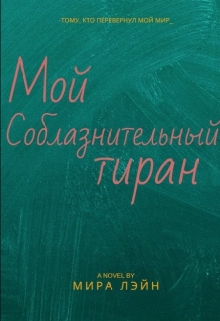 ТОМУ, КТО ПЕРЕВЕРНУЛ МОЙ МИР_
Мой
Соблазнительный
тиран
A NOVEL BY
МИРА ЛЭЙН